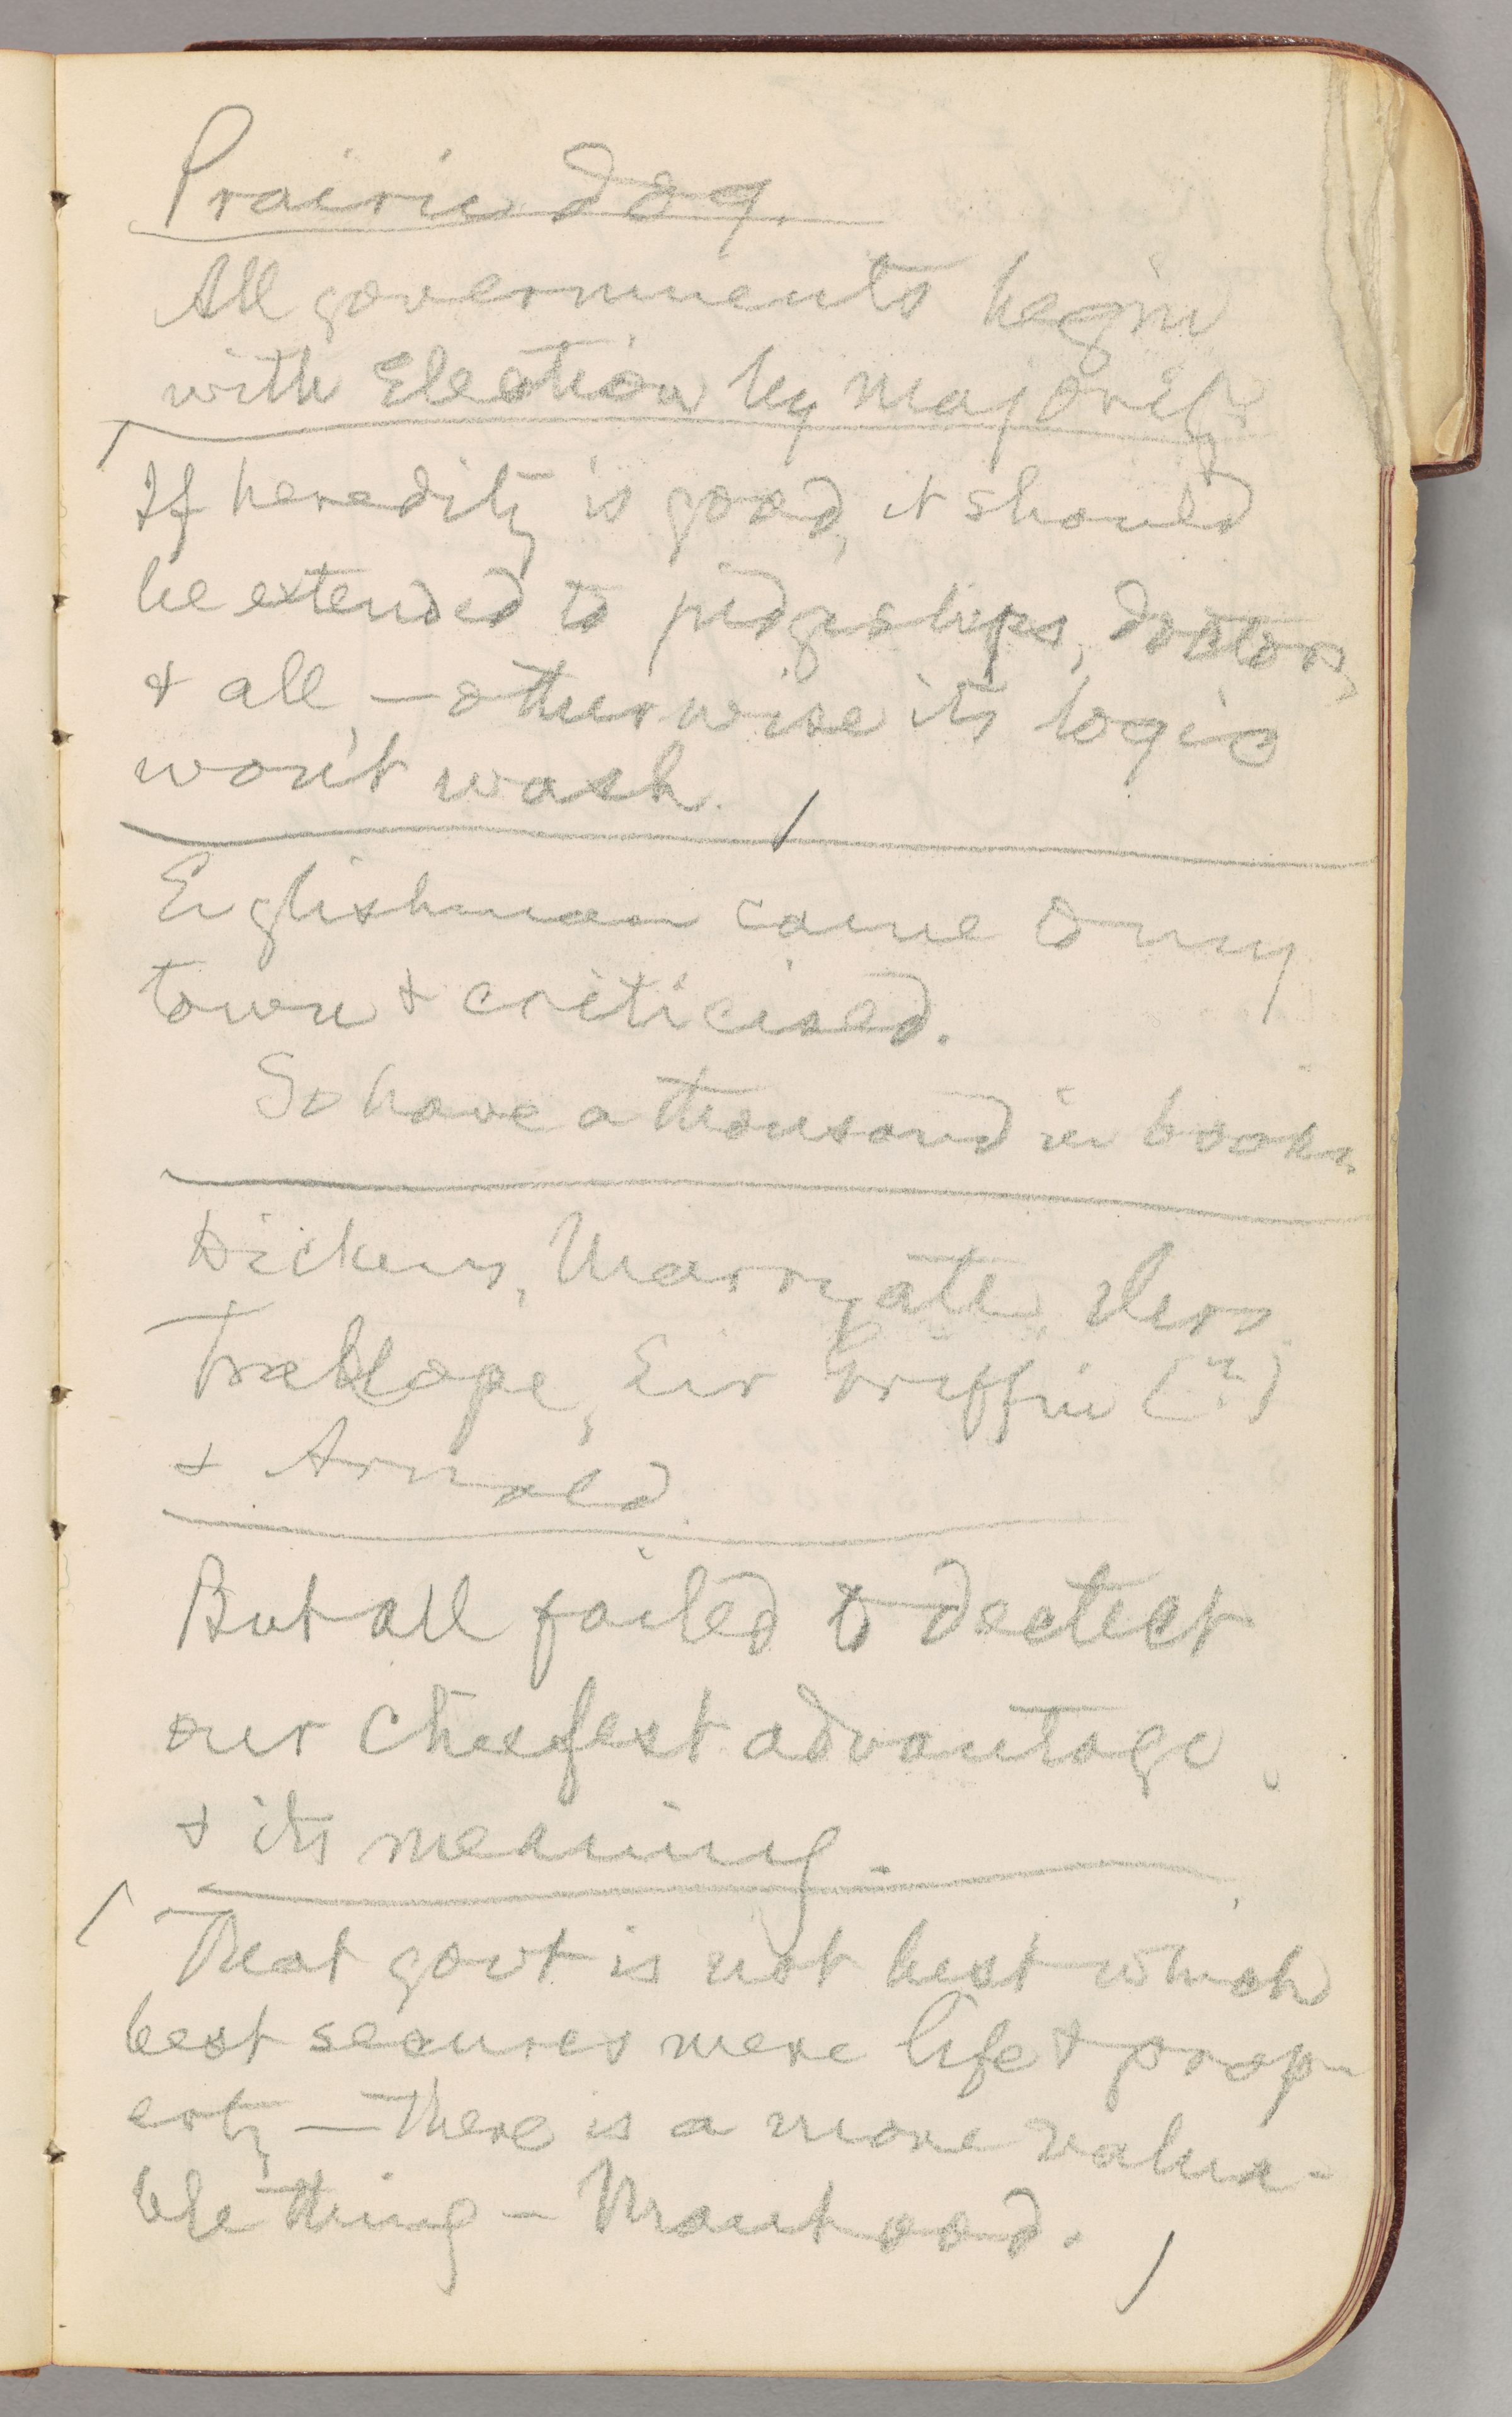 Prairie dog.
All governments begin
with Election by majority
If heredity is good, it should
be extended to judgeships, doctors,
& all — otherwise its logic
won't wash.
Englishman came to my
town & criticised.
So have a thousand in books
Dickens, Marryatt, Mrs
Trollope, Sir Griffin (?)
& Arnold.
But all failed to dectect
our chiefest advantage
& its meaning.
That govt is not best which
best secures mere life & prop-
erty — there is a more valua-
ble thing — Manhood.